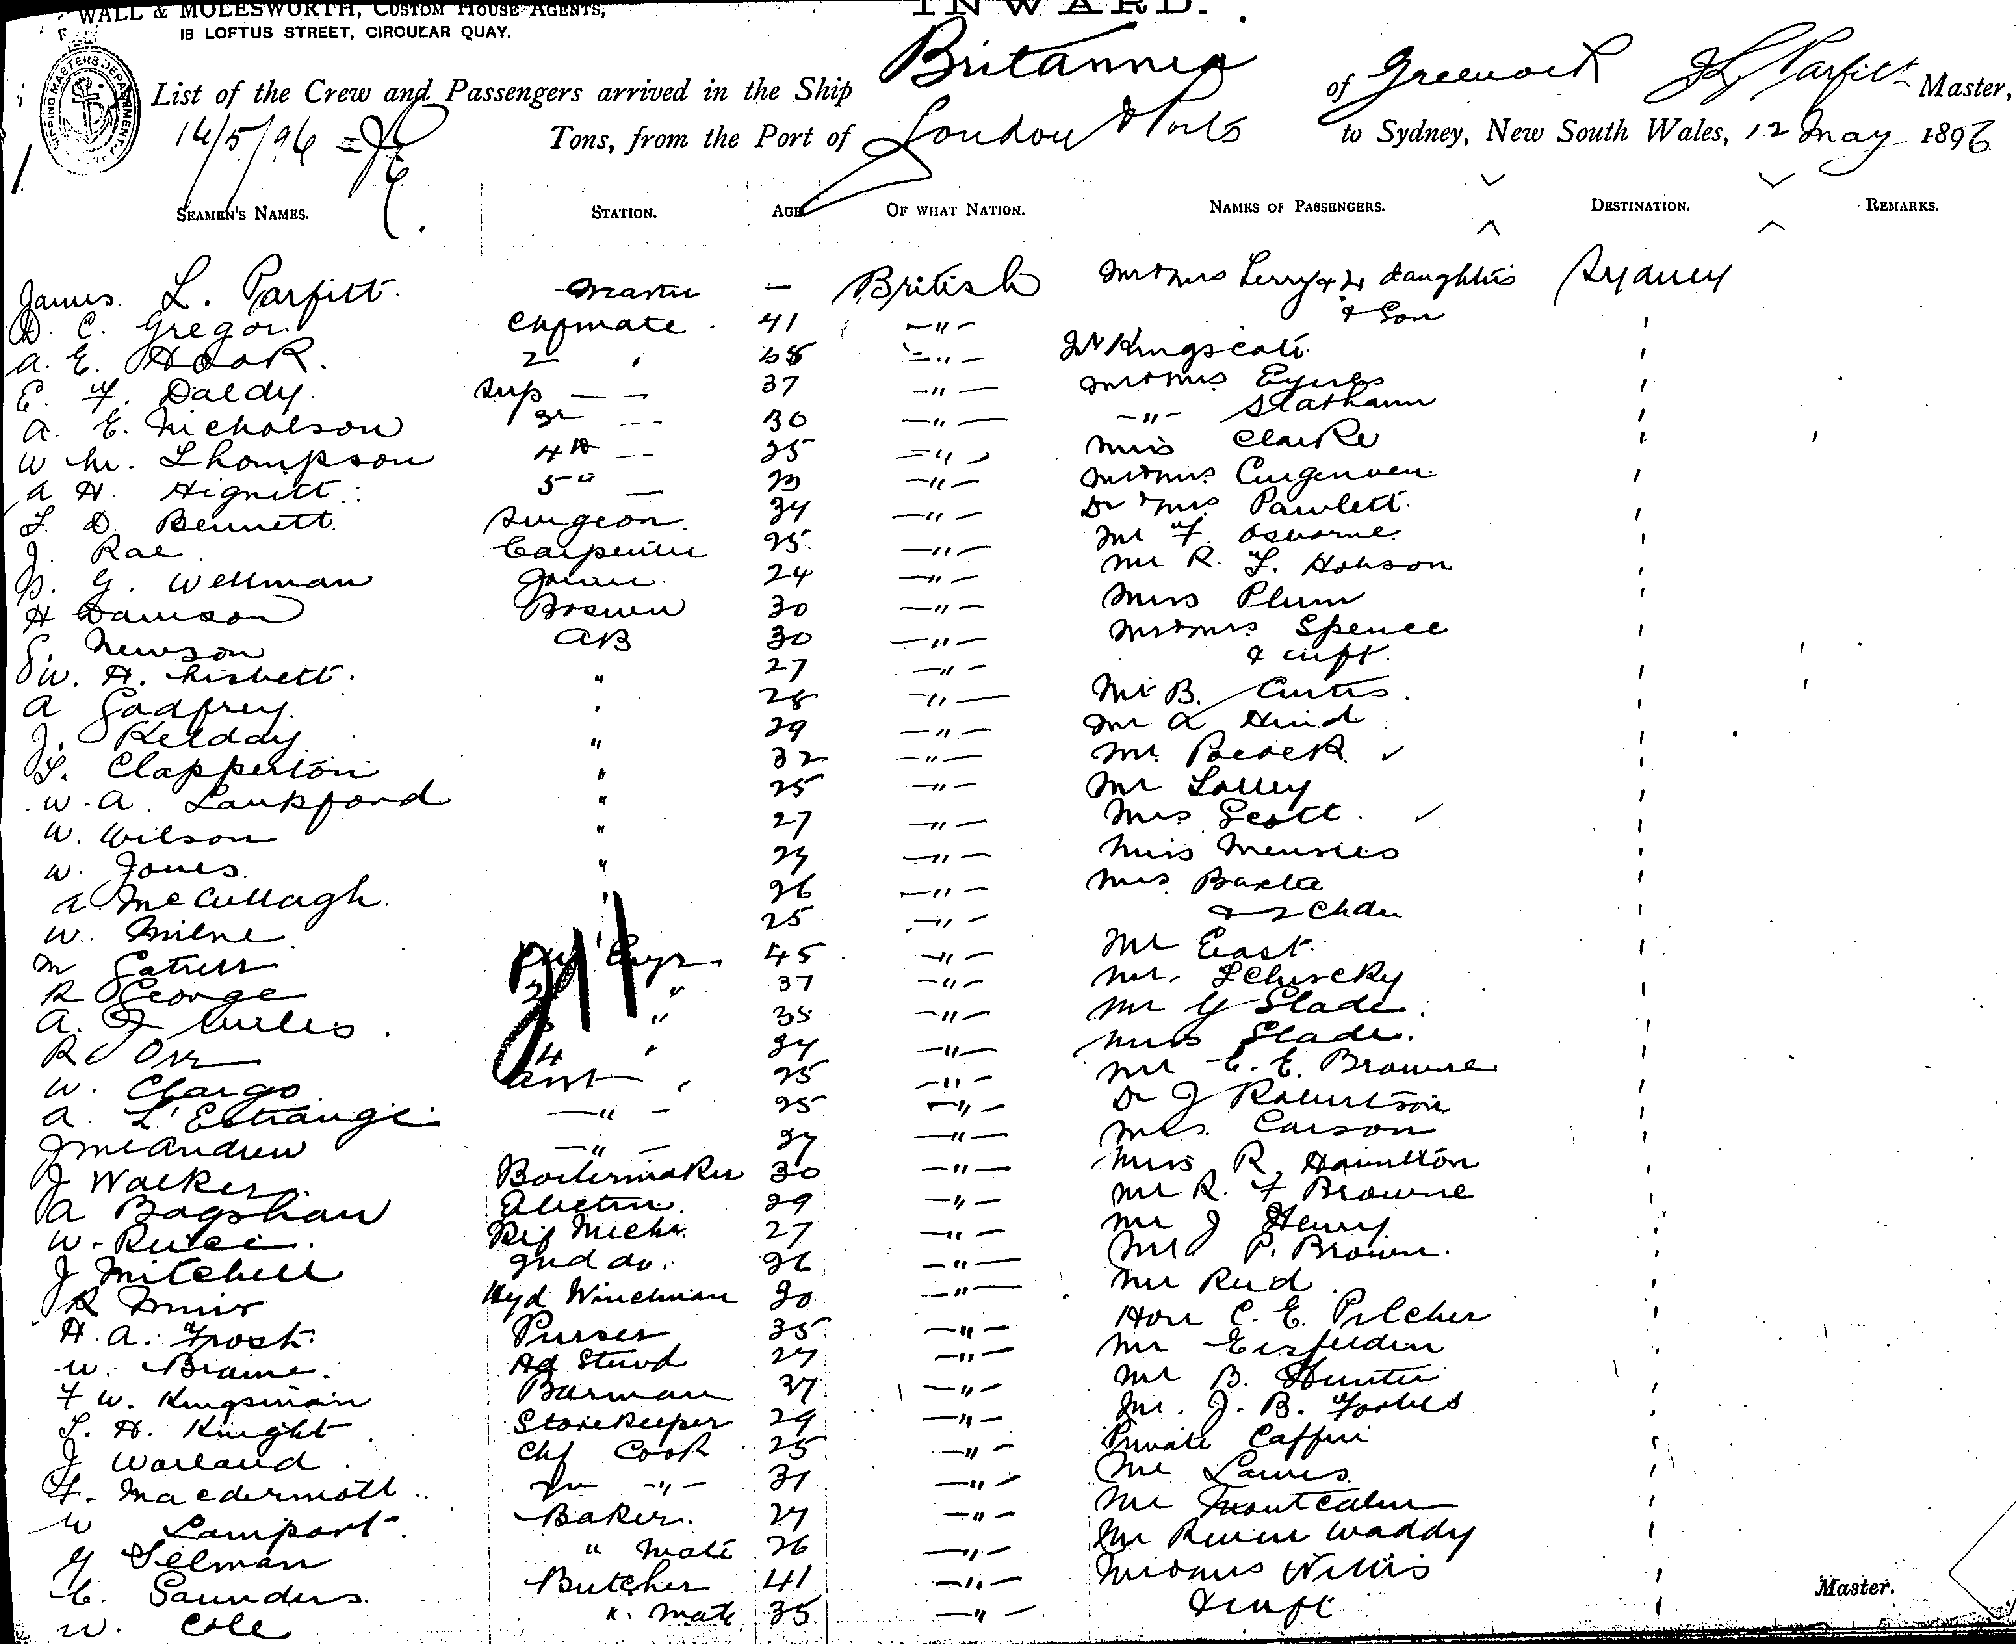 WALL & MOLESWORTH, CUSTOM HOUSE AGENTS,
18 LOFTUS STREET, CIRCULAR QUAY.
INWARD.
SHIPPING MASTER'S DEPARTMENT
List of the Crew and Passengers arrived in the Ship Britannia of Greenock J L Parfitt Master,
14/5/96
Tons, from the Port of London & Ports to Sydney, New South Wales, 12 May 1896
SEAMEN'S NAMES. STATION. AGE OF WHAT NATION. NAMES OF PASSENGERS. DESTINATION. REMARKS.
James L. Parfitt. Master — British Mr & Mrs Perry & 4 daughters Sydney
D. C. Gregor. Chfmate 41 — " — & Son
A. E. Hook. 2 — " — Mr Kingscote
E. F. Daldy. Sup — — 37 — " — Mr & Mrs Eyres
A. E. Nicholson 3r — 30 — " — — " — Statham
W. M. Thompson 4th — 25 — " — Miss Clarke
A H. Hignett 5th — — " — Mr & Mrs Curgenven
T. D. Bennett. Surgeon. 34 — " — Dr & Mrs Pawlett.
J. Rae Carpenter 25 — " — Mr F. Osborne
G. Wellman Joiner 24 — " — Mr R. T. Hobson
H Davison Boswn 30 — " — Miss Plum
Newson AB 30 — " — Mr & Mrs Spence
W. H. Nisbett. " 27 — " — & inft.
A Godfrey. " 28 — " — Mr B. Curtis.
J. Kelday " 29 — " — Mr A Hind
T. Clapperton " 32 — " — Mr. Pocock ✓
W. A. Lankford " 25 — " — Mr Lolley
W. Wilson " 27 — " — Mrs Scott. ✓
W. Jones " — " — Miss Menzies
A McCullagh. " 26 — " — Mrs Baxter
W. Milne 25 — " — & 2 Chdn
M Gatrell Engr. 45 — " — Mr East.
R George " 37 — " — Mr.
A. J Miles " 35 — " — Mr G Slade.
R Orr 4 " 34 — " — Miss Slade.
W. Chargo Asst " 25 — " — Mr E. E. Browne
A. L'Estrange — " — 25 — " — Dr J Robertson
J McAndrew — " — — " — Mrs Carson
J Walker Boilermaker 30 — " — Miss R. Hamilton
A Bagshaw Electrn. 29 — " — Mr R. F Browne
W. Reice. Rif Mechc. 27 — " — Mr J Henry
J Mitchell 2nd do. 26 — " — Mr P. Brown.
R Muir Hyd Winchman 30 — " — Mr Reid.
H. A. Frost. Purser 35 — " — Hon C. E. Pilcher
W. Brame. Hd Stewd — " — Mr Eisfelden
F W. Kingsman Barman — " — Mr B. Hunter
T. H. Knight Storekeeper 29 — " — Mr. J. B. Forbes
J Warland Chf Cook 25 — " — Private Caffin
F. Macdermott 2n — " — 31 — " — Mr Lawes
W Lamport Baker. 27 — " — Mr
G Selman " Mate 26 — " — Mr Waddy
C. Saunders. Butcher 41 — " — Mr & Mrs Willis
W. Cole " Mate 35 — " — & inft
Master.